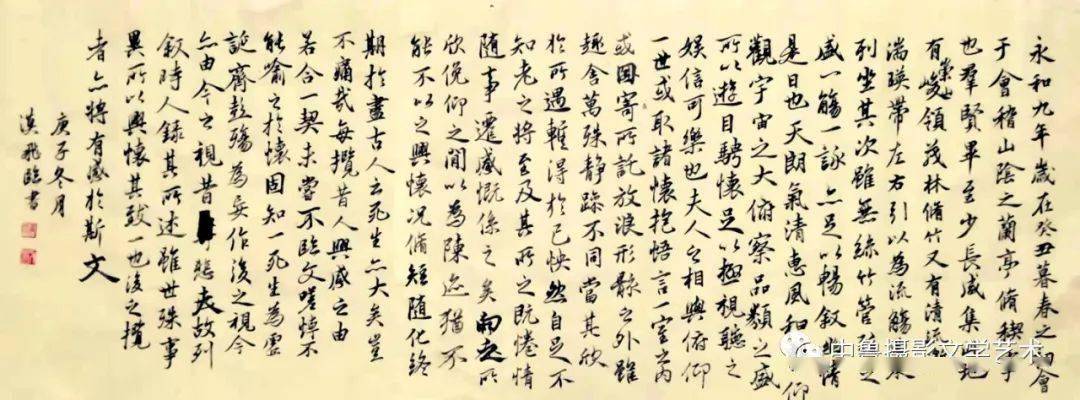 永和九年歲在癸丑暮春之初會
于會稽山陰之蘭亭脩禊事
也羣賢畢至少長咸集此地
有崇山峻領茂林脩竹又有清流
湍暎帶左右引以為流觴水
列坐其次雖無絲竹管之
盛一觴一詠亦足以暢叙幽情
是日也天朗氣清惠風和仰
觀宇宙之大俯察品類之盛
所以遊目騁懷足以極視聽之
娛信可樂也夫人之相與俯仰
一世或取諸懷抱悟言一室之內
或因寄所託放浪形骸之外雖
趣舍萬殊静躁不同當其欣
於所遇暫得於己怏然自足不
知老之將至及其所之既惓情
隨事遷感慨係之矣向之所
欣俛仰之間以為陳迹猶不
能不以之興懷况脩短隨化終
期於盡古人云死生亦大矣豈
不痛哉每攬昔人興感之由
若合一契未嘗不臨文嗟悼不
能喻之於懷固知一死生為虛
誕齊彭殤為妄作後之視今
亦由今之視昔悲夫故列
叙時人錄其所述雖世殊事
異所以興懷其致一也後之攬
者亦將有感於斯文
庚子冬月
漢飛臨書
中鲁摄影文学艺术